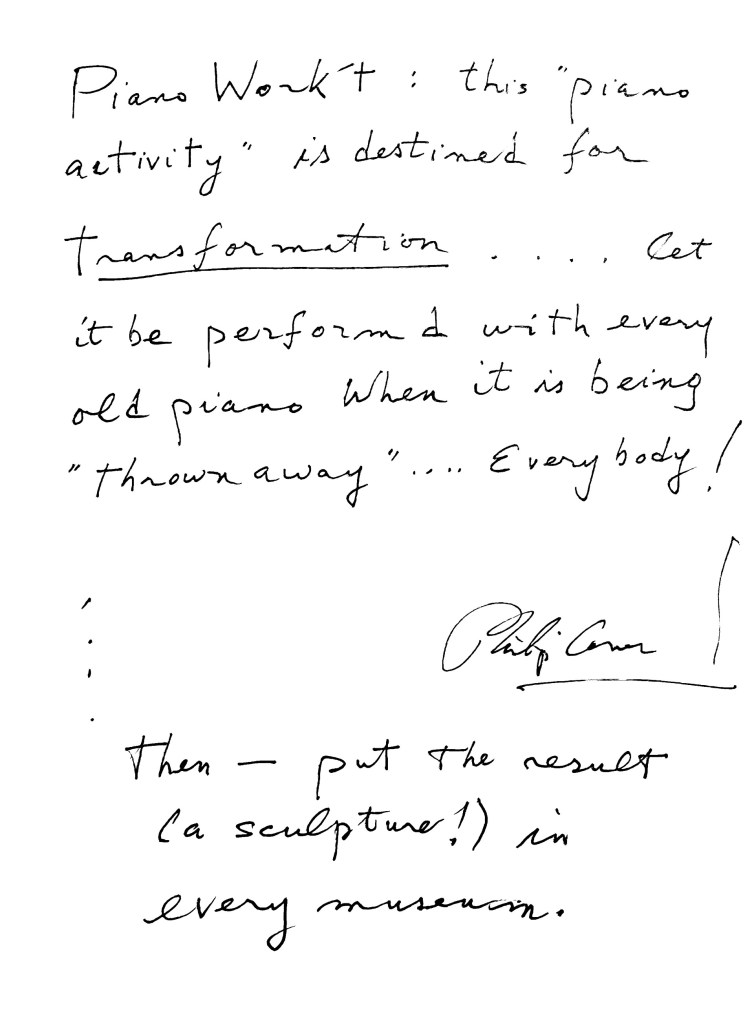 Piano Work't : this "piano
activity" is destined for
transformation . . . . Let
it be performd with every
old piano When it is being
"thrown away" .... Everybody!
Philip Corner
Then — put the result
(a sculpture!) in
every museum.